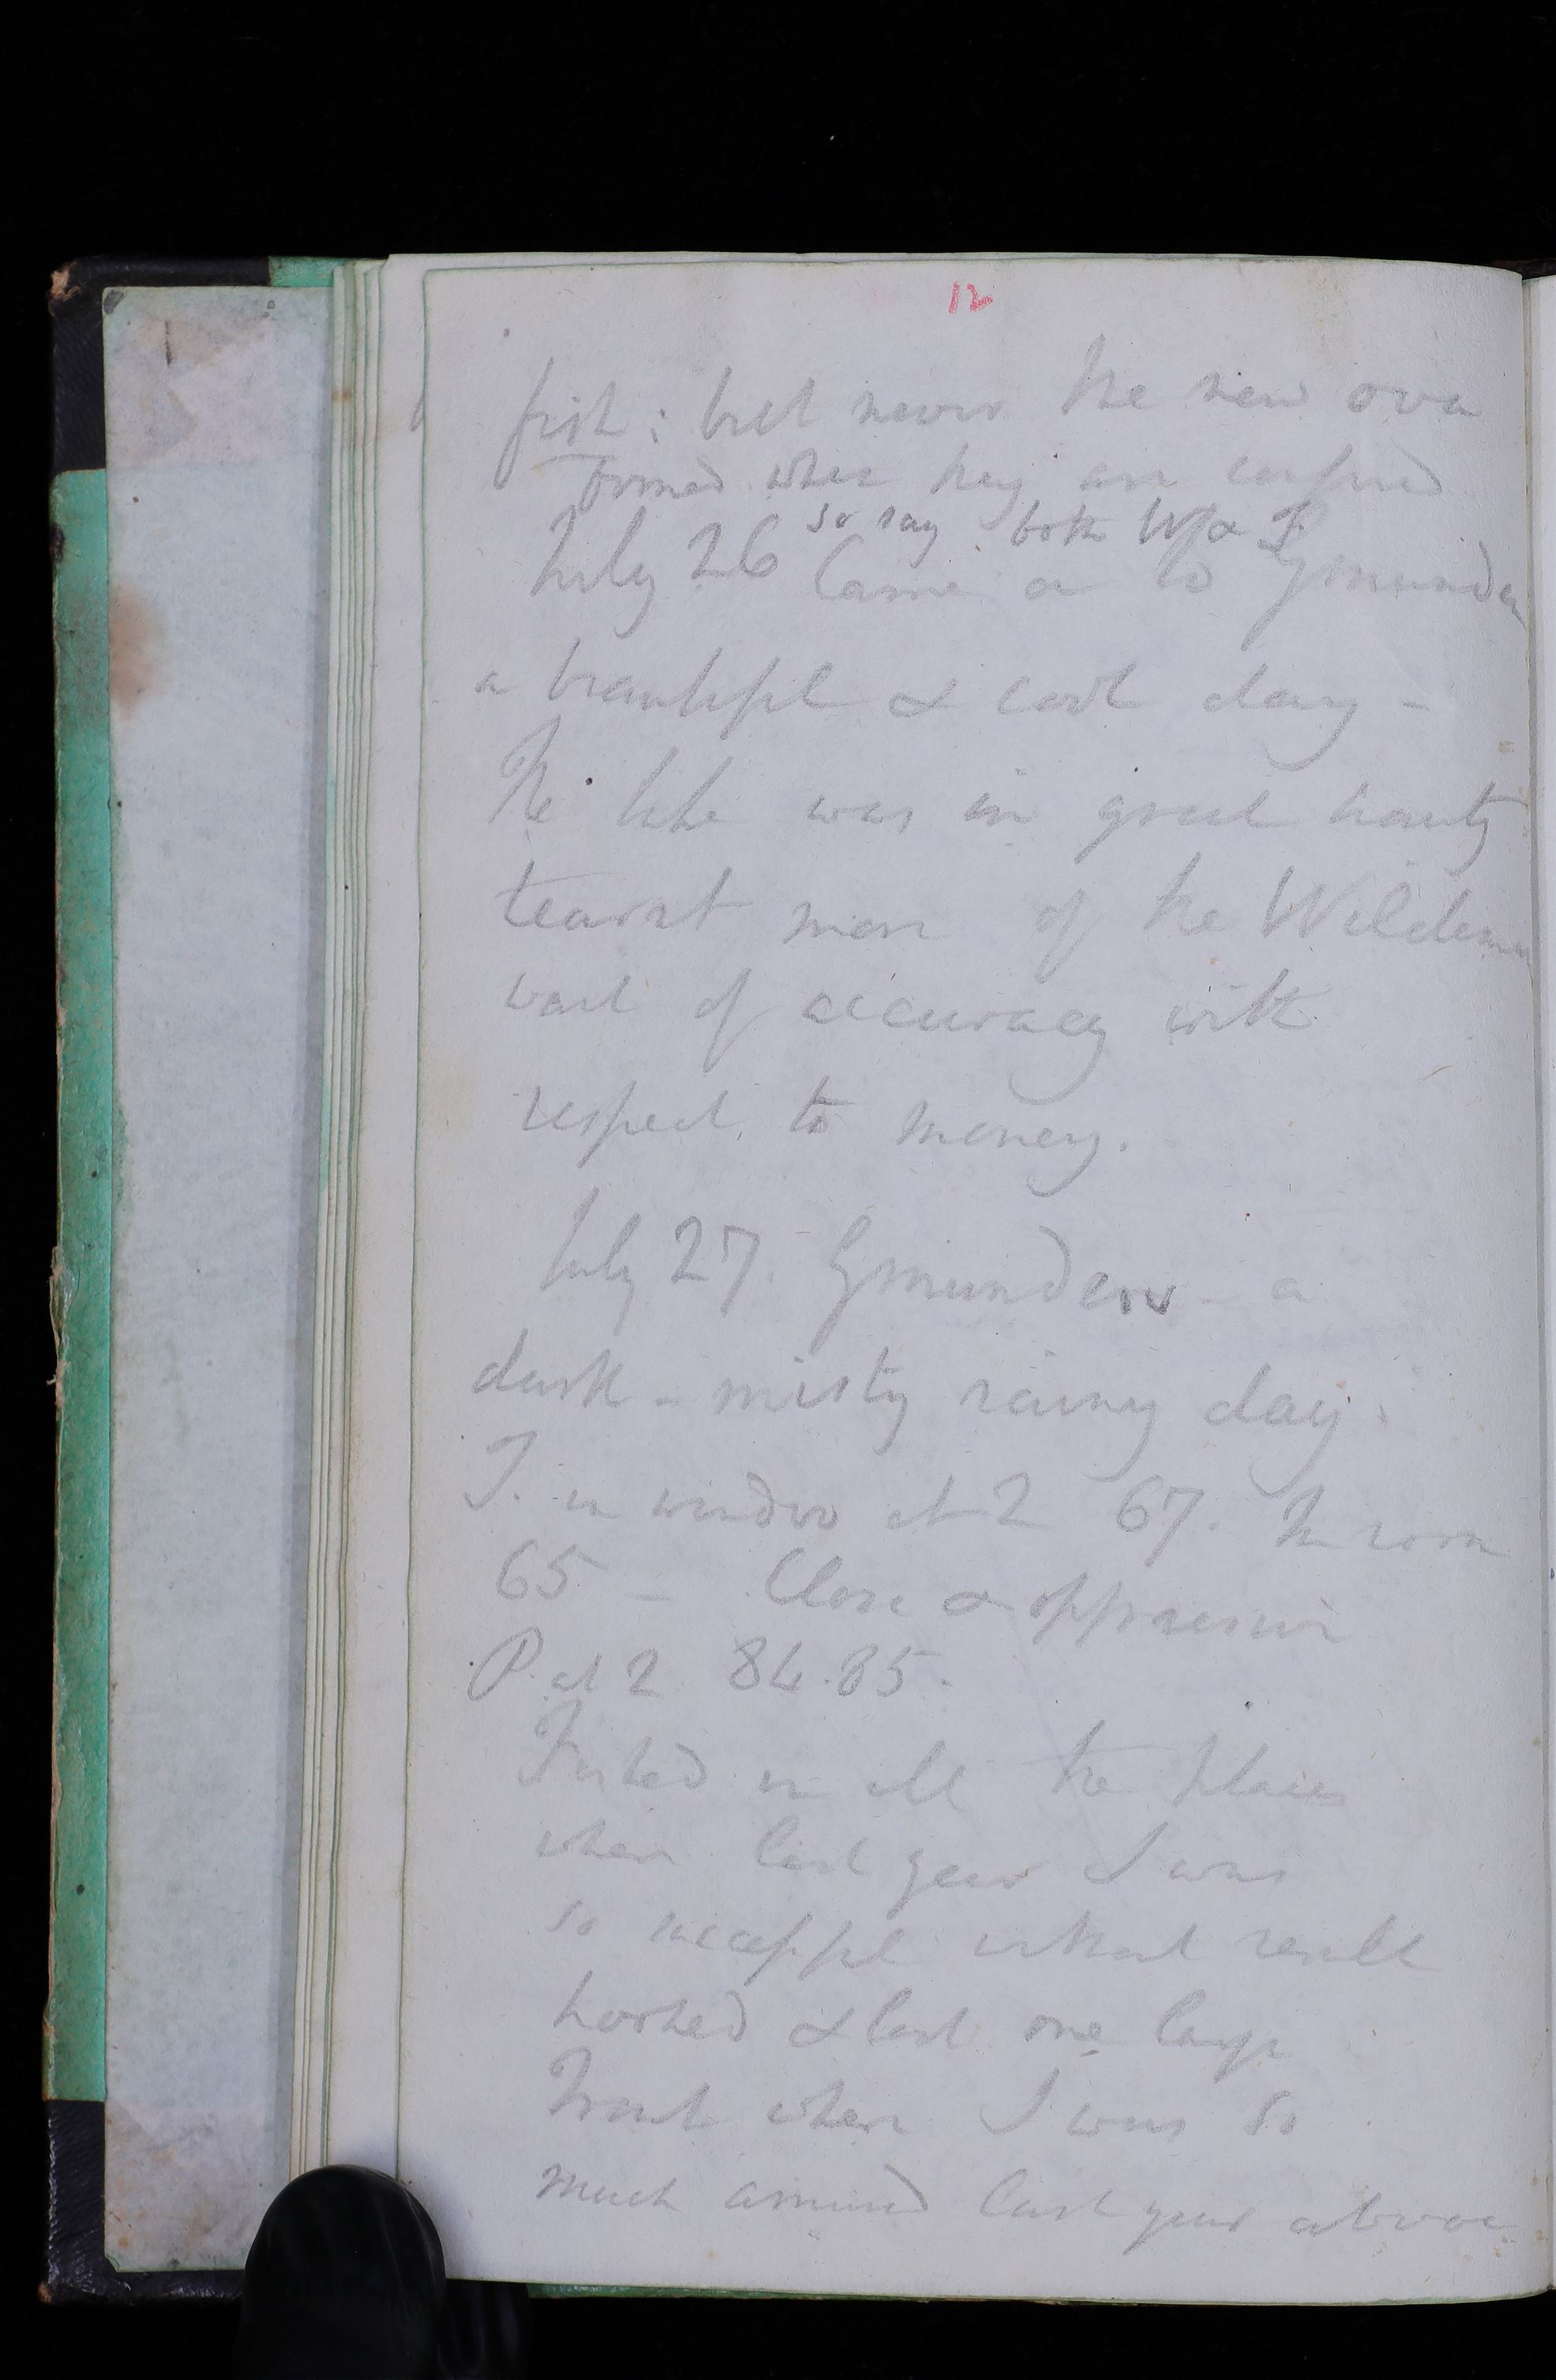 12
fish: but never the new ova
formed when they are confined
so say both W & J.
July 26 Came on to Gmunden
a beautiful & cool day -
The lake was in great beauty
learnt more of the
want of accuracy with
respect to money.
July 27. Gmunden - a
dark - misty rainy day.
T. in window at 2 67. In room
65 - Close & oppressive
P. at 2 84.85.
Fished in all the places
where last year I was
so successful without result
hooked & lost one large
Trout where I was so
much amused last year above